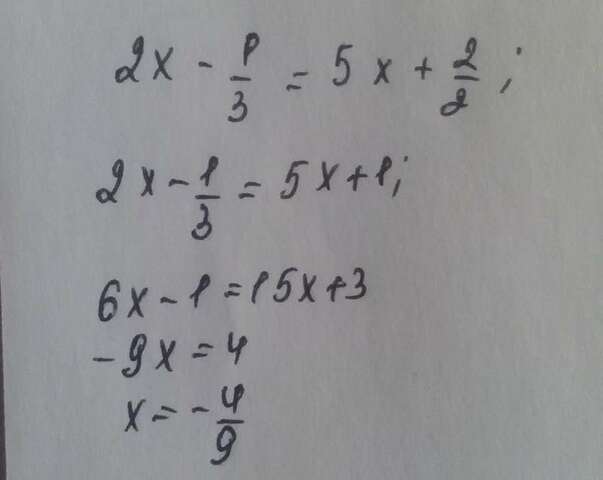 2x - 1/3 = 5x + 2/2;
2x - 1/3 = 5x + 1;
6x - 1 = 15x + 3
-9x = 4
x = -4/9